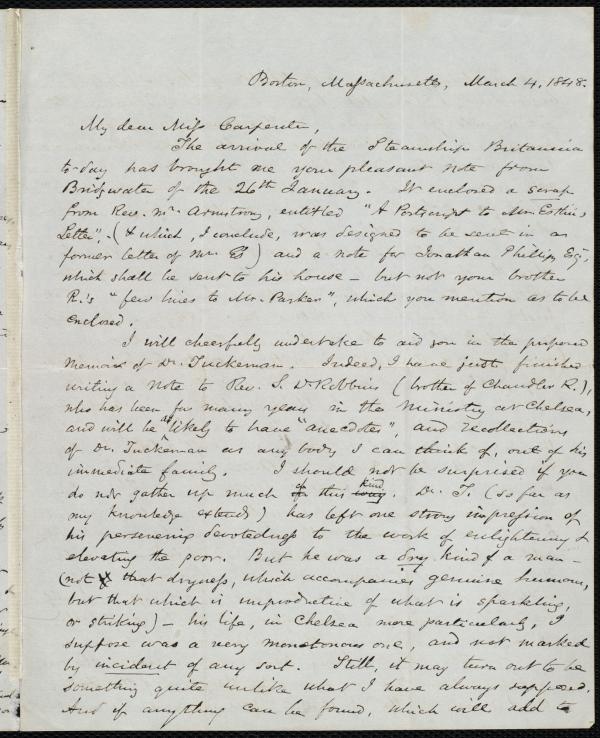 Boston, Massachusetts, March 4, 1848.
My dear Miss Carpenter,
The arrival of the Steamship Britannia
to-day has brought me your pleasant note from
Bridgwater of the 26th January. It enclosed a scrap
from Rev. Mr. Armstrong, entitled "A Postscript to Mr. Estlin's
Letter", (& which, I conclude, was designed to be sent in a
former letter of Mr. E's) and a note for Jonathan Phillips Esq.,
which shall be sent to his house – but not your brother
R.'s "few lines to Mr. Parker", which you mention as to be
enclosed.
I will cheerfully undertake to aid you in the proposed
Memoir of Dr. Tuckerman. Indeed, I have just finished
writing a note to Rev. S. D. Robbins (brother of Chandler R.),
who has been for many years in the ministry at Chelsea,
and will be as likely to have "anecdotes", and recollections
of Dr. Tuckerman as any body I can think of, out of his
immediate family. I should not be surprised if you
do not gather up much of this kind. Dr. T. (so far as
my knowledge extends) has left one strong impression of
his persevering devotedness to the work of enlightening &
elevating the poor. But he was a dry kind of a man –
(not that dryness, which accompanies genuine humour,
but that which is unproductive of what is sparkling,
or striking) – his life, in Chelsea more particularly, I
suppose was a very monotonous one, and not marked
by incident of any sort. Still, it may turn out to be
something quite unlike what I have always supposed.
And if anything can be found, which will add to